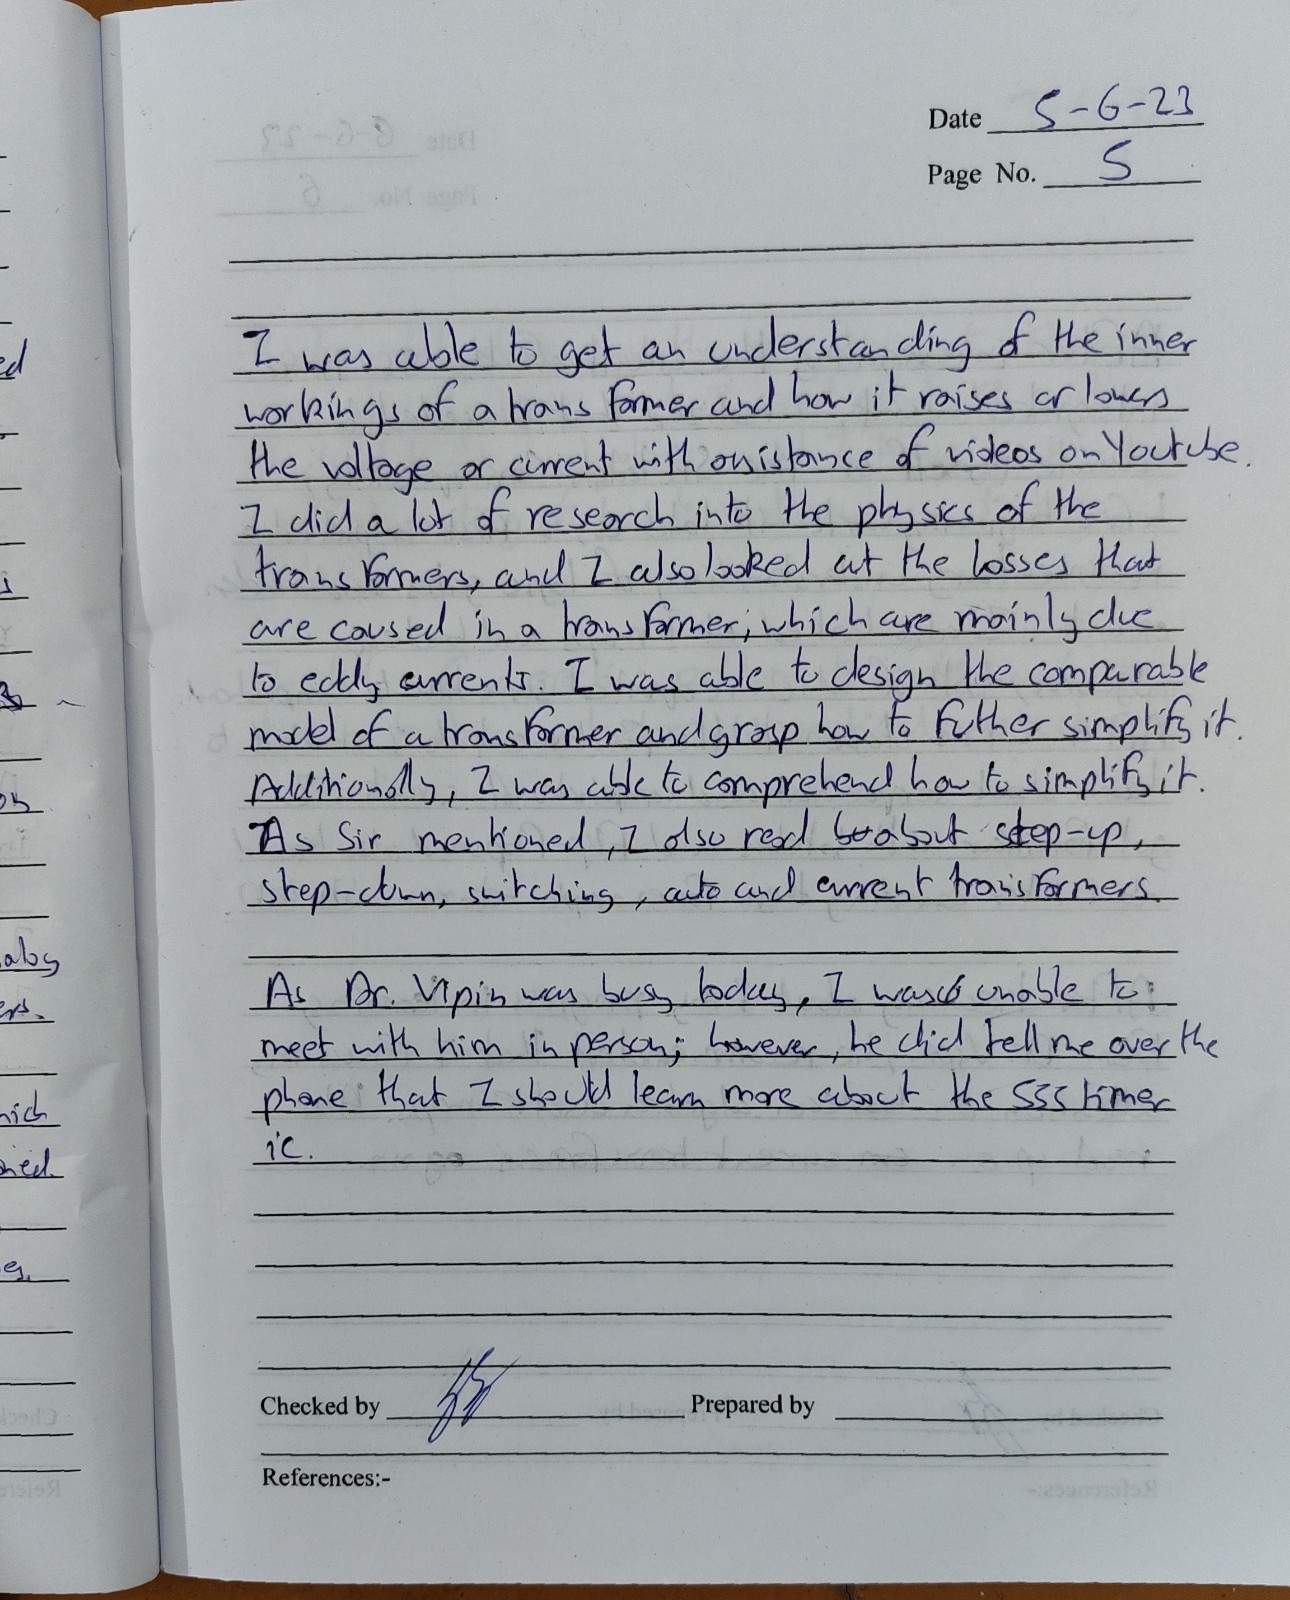 Date 5-6-23
Page No. 5
I was able to get an understanding of the inner
workings of a transformer and how it raises or lowers
the voltage or current with assistance of videos on Youtube.
I did a lot of research into the physics of the
transformers, and I also looked at the losses that
are caused in a transformer, which are mainly due
to eddy currents. I was able to design the comparable
model of a transformer and grasp how to futher simplify it.
Additionally, I was able to comprehend how to simplify it.
As Sir mentioned, I also read about step-up,
step-down, switching, auto and current transformers.
As Dr. Vipin was busy today, I was unable to
meet with him in person; however, he did tell me over the
phone that I should learn more about the 555 timer
ic.
Checked by
Prepared by
References:-
ed
on
alog
ers.
hich
oned.
es.